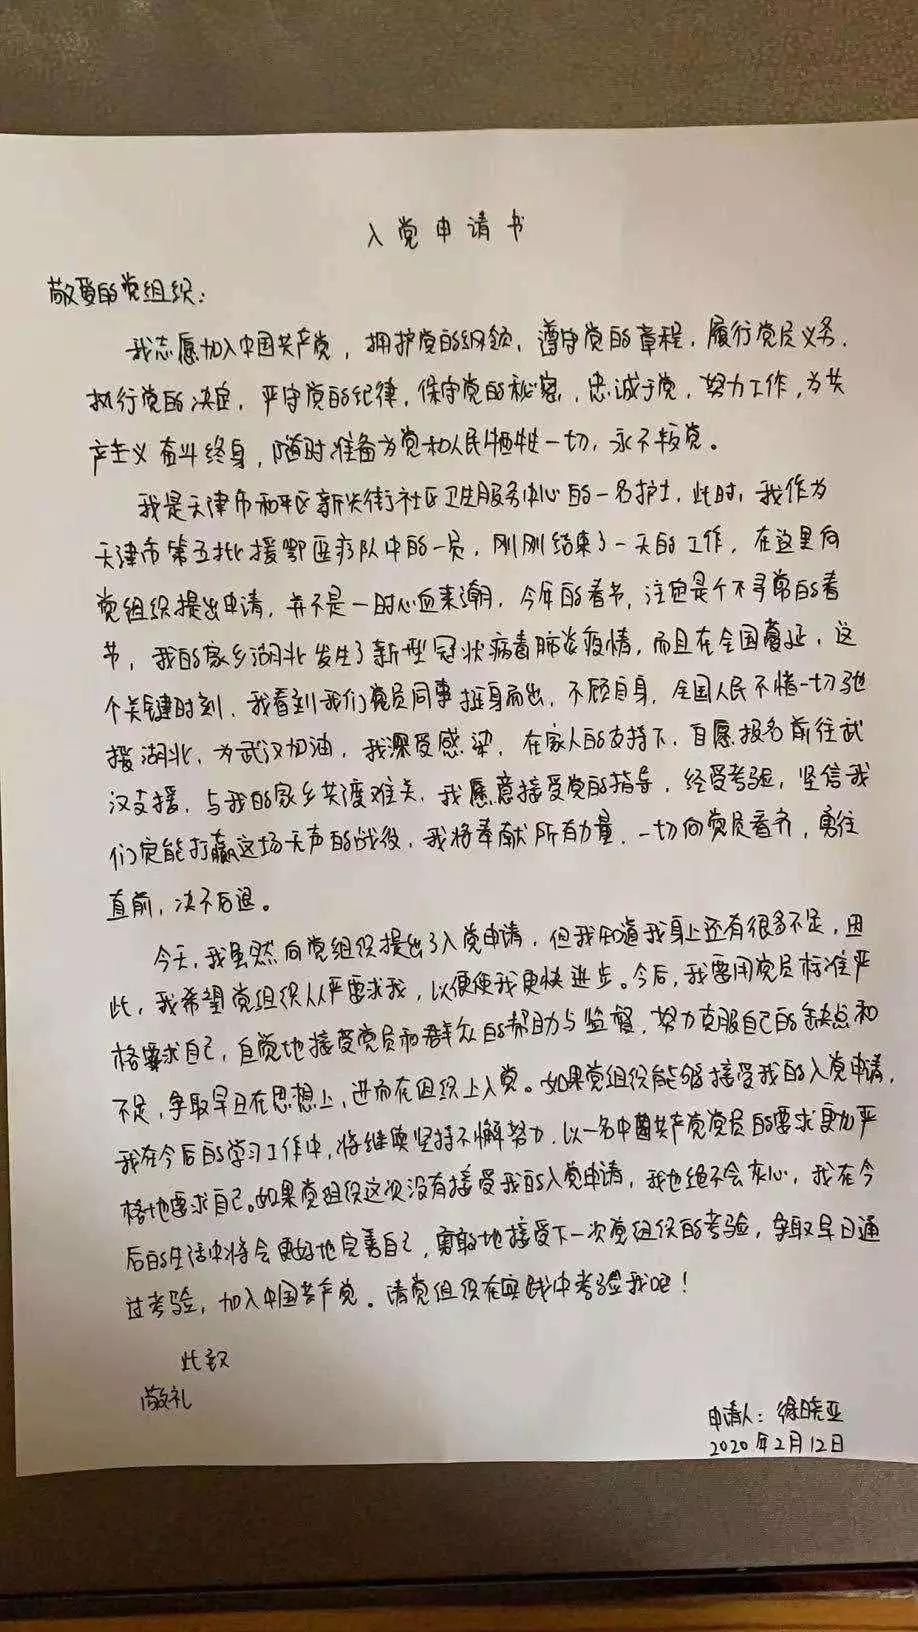 入党申请书
敬爱的党组织：
我志愿加入中国共产党，拥护党的纲领，遵守党的章程，履行党员义务，
执行党的决定，严守党的纪律，保守党的秘密，忠诚于党，努力工作，为共
产主义奋斗终身，随时准备为党和人民牺牲一切，永不叛党。
我是天津市和平区新兴街社区卫生服务中心的一名护士，此时，我作为
天津市第五批援鄂医疗队中的一员，刚刚结束了一天的工作，在这里向
党组织提出申请，并不是一时心血来潮，今年的春节，注定是个不寻常的春
节，我的家乡湖北发生了新型冠状病毒肺炎疫情，而且在全国蔓延，这
个关键时刻，我看到我们党员同事挺身而出，不顾自身，全国人民不惜一切驰
援湖北，为武汉加油，我深受感染，在家人的支持下，自愿报名前往武
汉支援，与我的家乡共度难关，我愿意接受党的指导，经受考验，坚信我
们定能打赢这场无声的战役，我将奉献所有力量，一切向党员看齐，勇往
直前，决不后退。
今天，我虽然向党组织提出了入党申请，但我知道我身上还有很多不足，因
此，我希望党组织从严要求我，以便使我更快进步。今后，我要用党员标准严
格要求自己，自觉地接受党员和群众的帮助与监督，努力克服自己的缺点和
不足，争取早日在思想上，进而在组织上入党。如果党组织能够接受我的入党申请，
我在今后的学习工作中，将继续坚持不懈努力，以一名中国共产党党员的要求更加严
格地要求自己。如果党组织这次没有接受我的入党申请，我也绝不会灰心，我在今
后的生活中将会更好地完善自己，勇敢地接受下一次党组织的考验，争取早日通
过考验，加入中国共产党。请党组织在实践中考验我吧！
此致
敬礼
申请人：徐晓亚
2020年2月12日